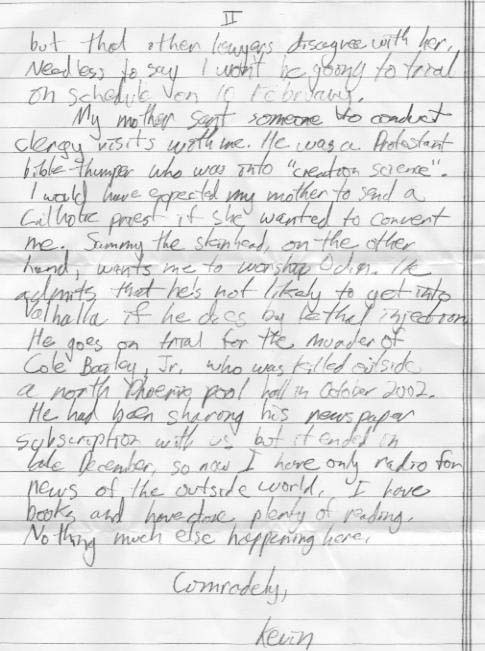 II
but that other lawyers disagree with her.
Needless to say I won't be going to trial
on schedule on 10 February.
My mother sent someone to conduct
clergy visits with me. He was a Protestant
bible-thumper who was into "creation science".
I would have expected my mother to send a
Catholic priest if she wanted to convert
me. Sammy the skinhead, on the other
hand, wants me to worship Odin. He
admits that he's not likely to get into
Valhalla if he dies by lethal injection.
He goes on trial for the murder of
Cole Bailey, Jr. who was killed outside
a north Phoenix pool hall in October 2002.
He had been sharing his newspaper
subscription with us but it ended in
late December, so now I have only radio for
news of the outside world. I have
books and have done plenty of reading.
Nothing much else happening here.
Comradely,
Kevin